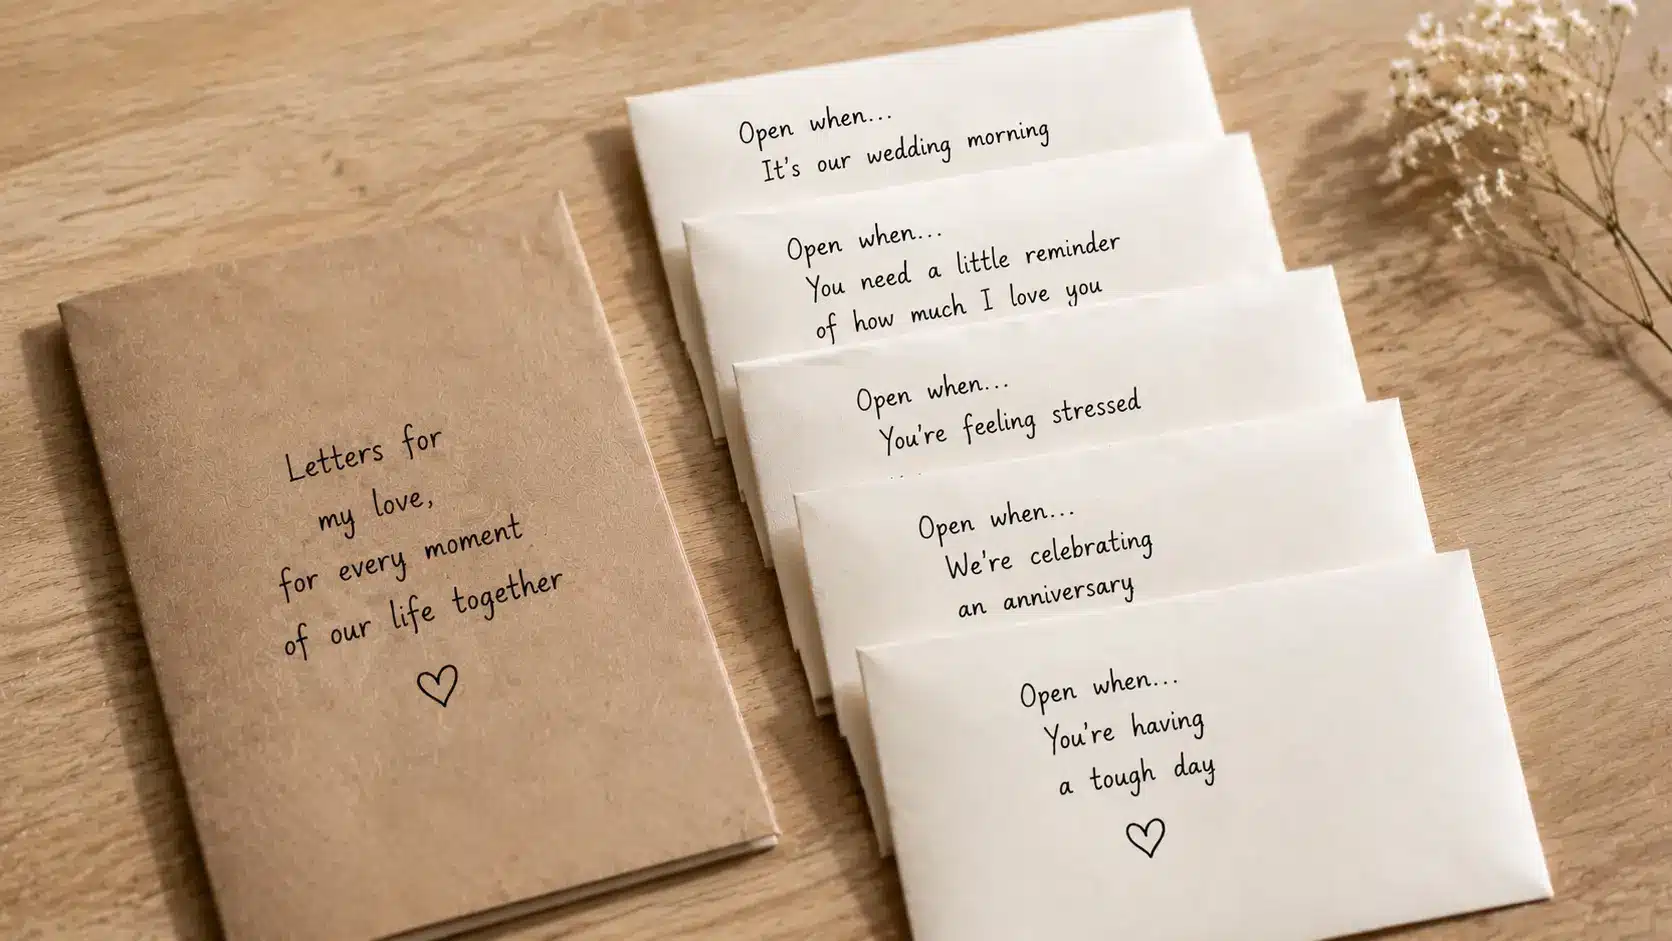 Letters for
my love,
for every moment
of our life together
Open when...
It's our wedding morning
Open when...
You need a little reminder
of how much I love you
Open when...
You're feeling stressed
Open when...
We're celebrating
an anniversary
Open when...
You're having
a tough day